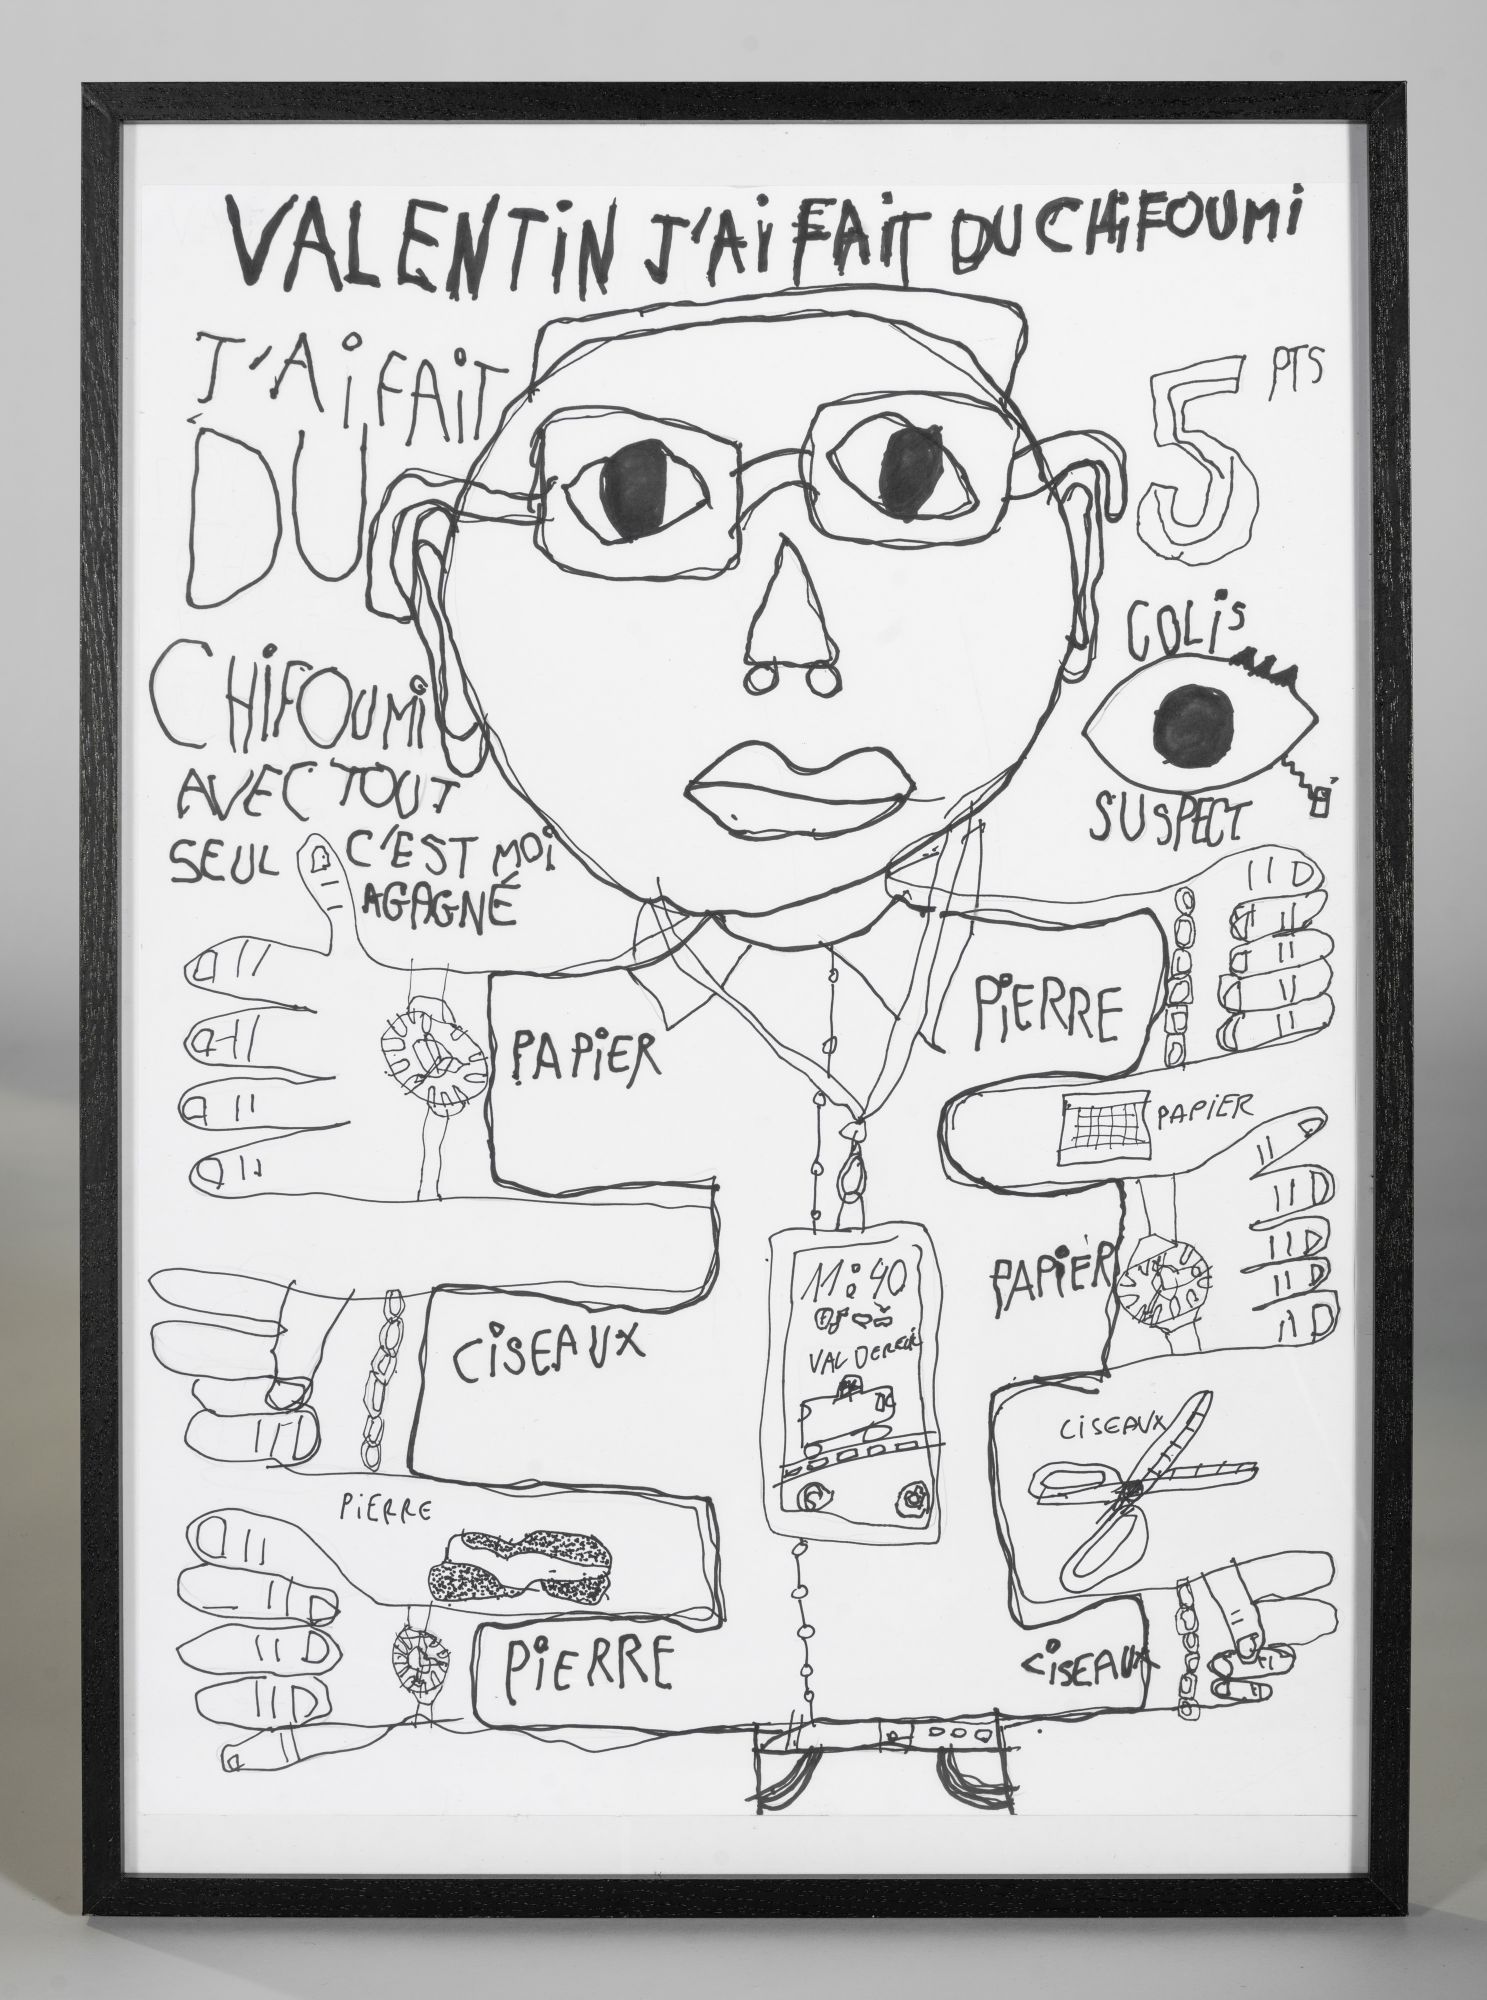 VALENTiN J'Ai FAiT DU CHiFOUMi
J'Ai FAiT
DU
CHiFOUMi
AVEC TOUT
SEUL C'EST MOi
AGAGNÉ
5 PTS
COLiS
SUSPECT
PAPiER
PiERRE
PAPiER
PAPiER
CiSEAUX
11:40
VAL DE REUiL
CiSEAUX
PiERRE
PiERRE
CiSEAUX